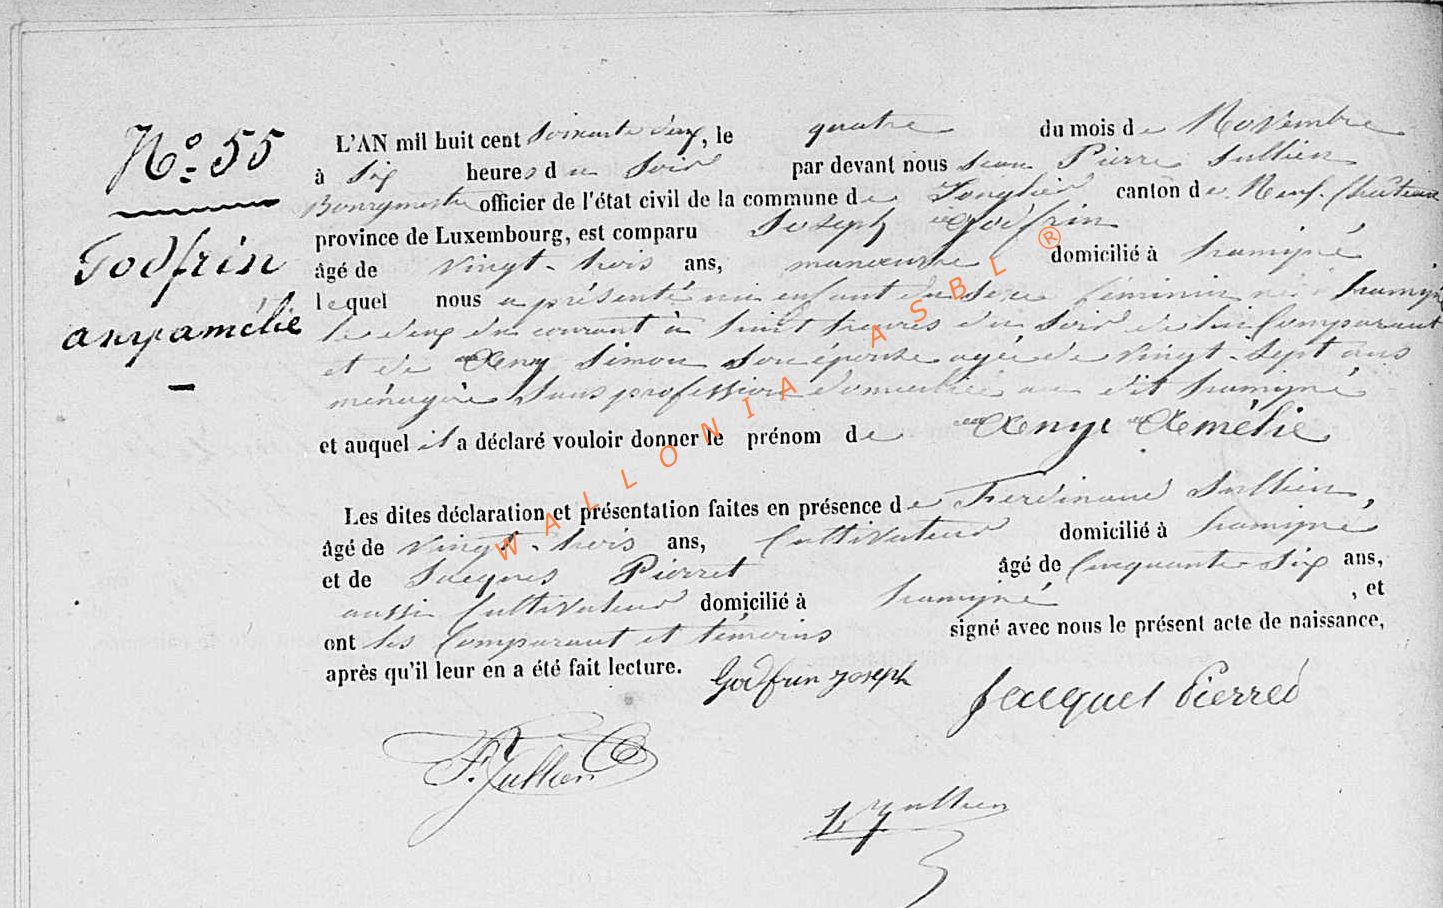 N° 55
Godfrin
any amélie
L'AN mil huit cent soixante deux, le quatre du mois de Novembre
à six heures du soir par devant nous Jean Pierre Jullien
Bourgmestre officier de l'état civil de la commune de Longlier canton de Neuf-Château
province de Luxembourg, est comparu Joseph Godfrin
âgé de vingt-trois ans, manœuvre domicilié à
lequel nous a présenté un enfant du sexe féminin né à
le deux du courant à huit heures du soir de lui Comparant
et de Any Simon son épouse agée de vingt-sept ans
ménagère sans profession domiciliée au dit
et auquel il a déclaré vouloir donner le prénom de Anye Amélie
Les dites déclaration et présentation faites en présence de Ferdinand Jullien,
âgé de vingt-trois ans, Cultivateur domicilié à
et de Jacques Pierret âgé de Cinquante six ans,
aussi Cultivateur domicilié à , et
ont les Comparant et témoins signé avec nous le présent acte de naissance,
après qu'il leur en a été fait lecture. Godfrin Joseph
Jacques Pierret
F. Jullien
Jullien
WALLONIA ASBL ®